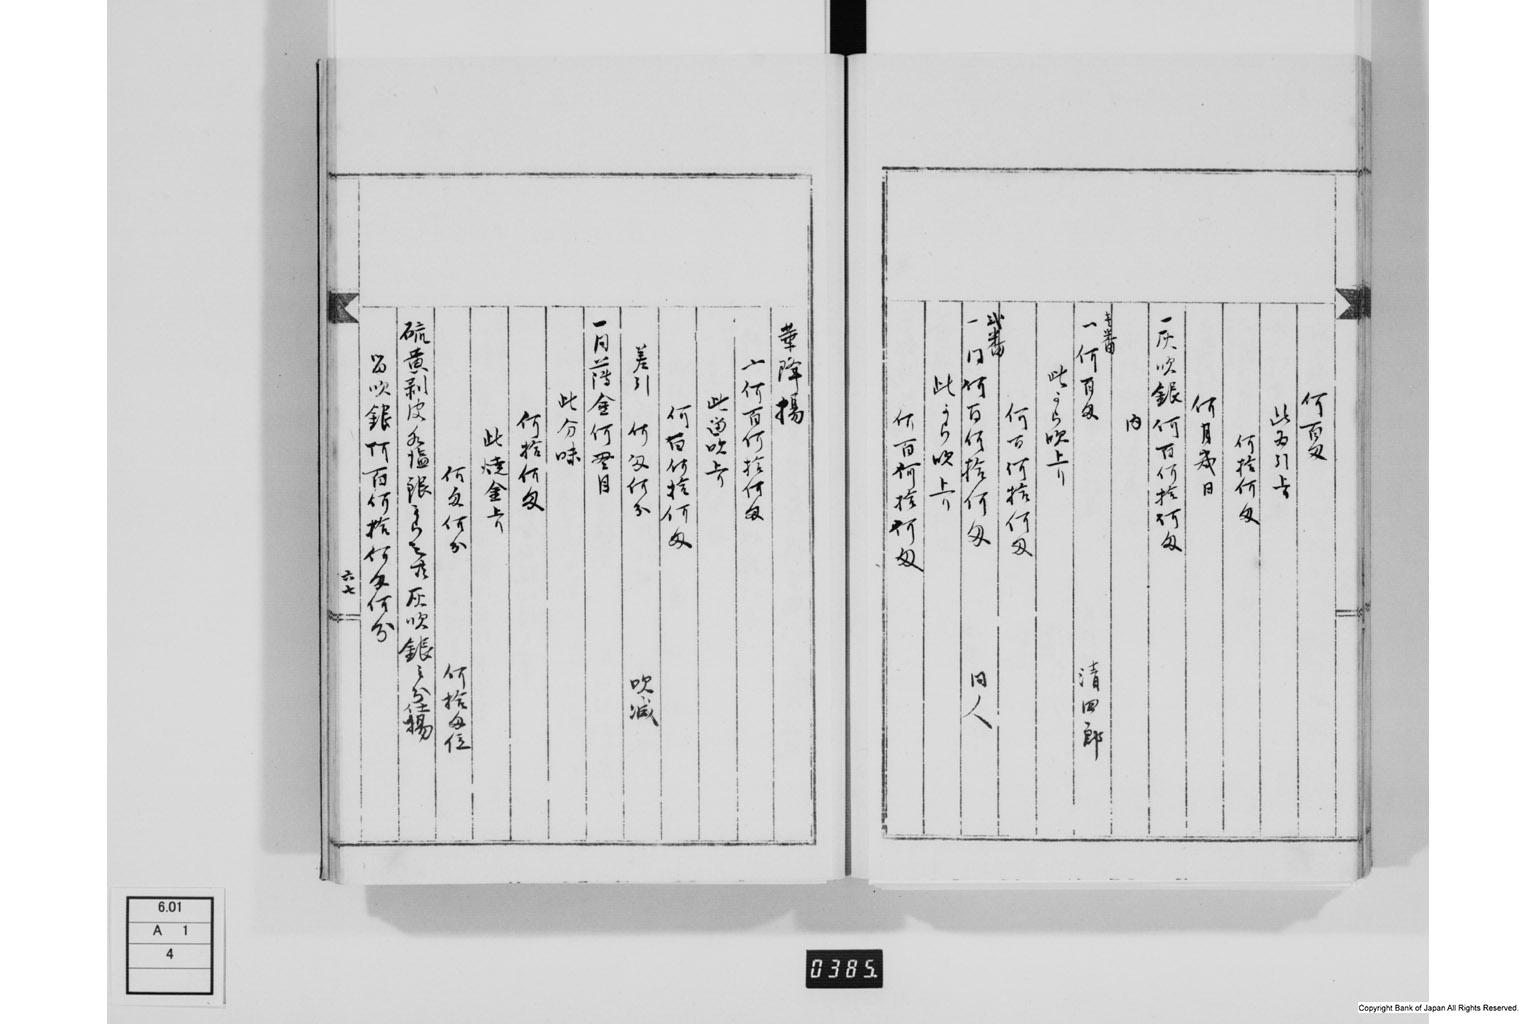 何百匁
此為引上ケ
何拾何匁
何月歳日
一灰吹銀何百何拾何匁
内
壱番
一何百匁 清四郎
此より吹上ケ
何百何拾何匁
弐番
一同何百何拾何匁 同人
此より吹上ケ
何百何拾何匁
華降揚
一何百何拾何匁
此留吹上ケ
何百何拾何匁
差引 何匁何分 吹減
一同薄金何貫目
此分味
何拾何匁
此焼金上ケ
何匁何分 何拾匁位
硫黄剥皮 塩銀 灰吹銀之分
留吹銀何百何拾何匁何分
六七
6.01
A 1
4
0385.
Copyright Bank of Japan All Rights Reserved.